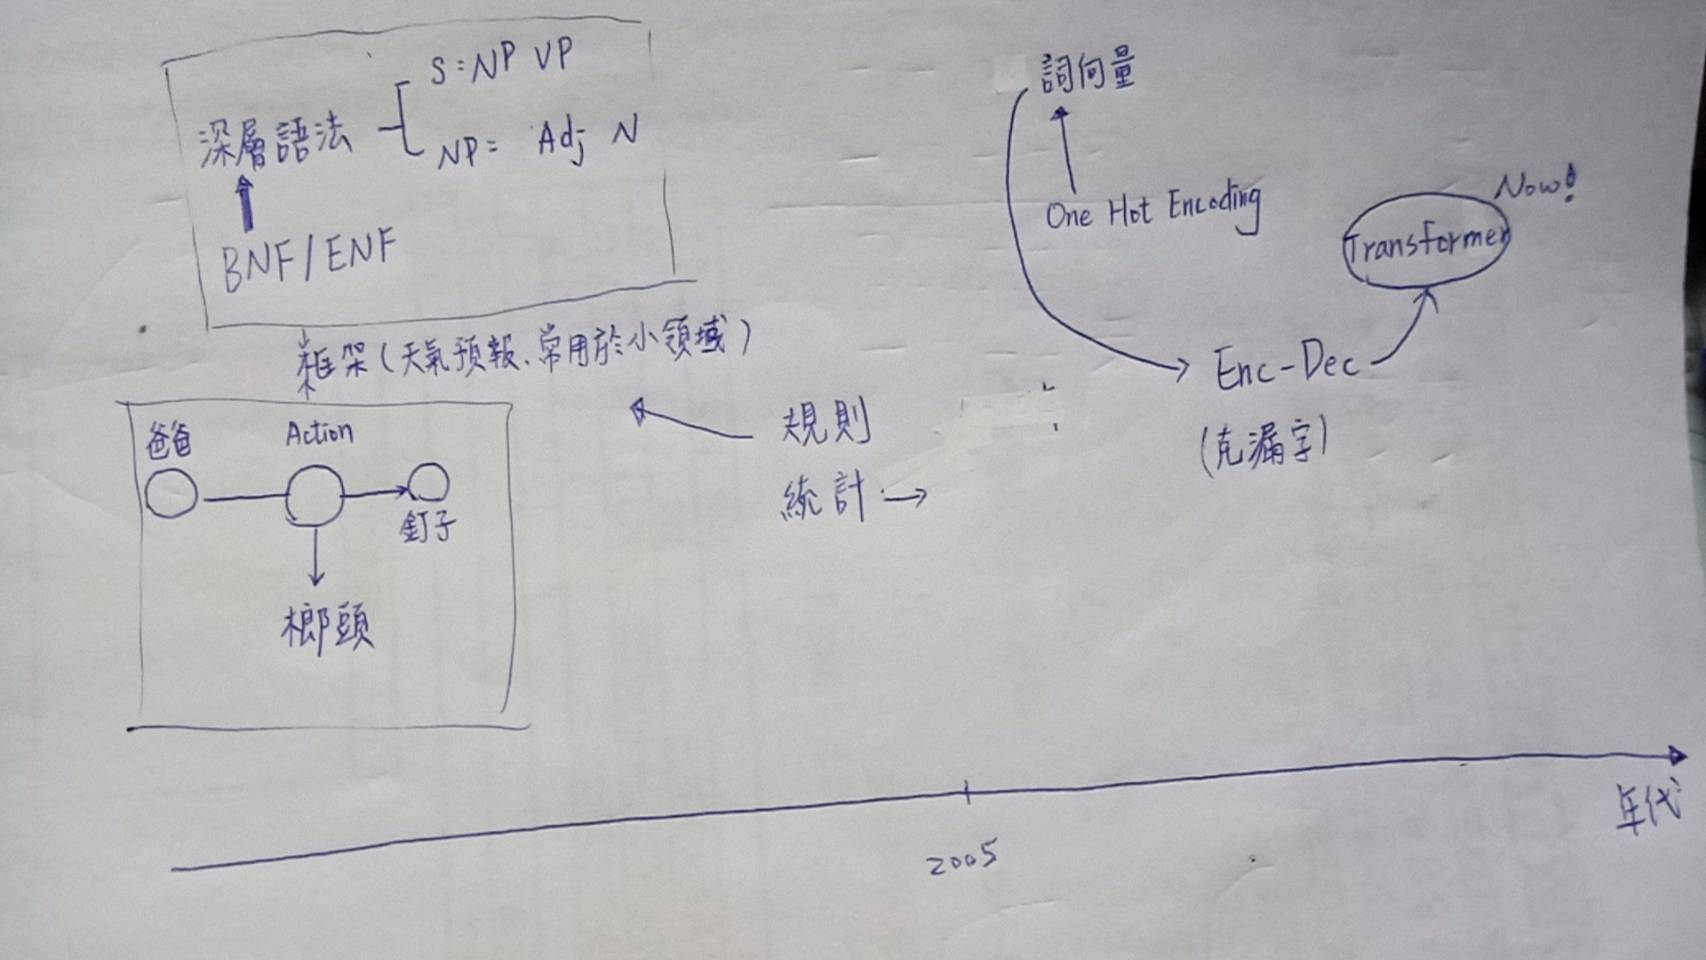 S = NP VP
深層語法
NP = Adj N
BNF / ENF
框架 (天氣預報、常用於小領域)
爸爸
Action
釘子
榔頭
規則
統計 →
詞向量
One Hot Encoding
Now!
Transformer
Enc-Dec
(克漏字)
2005
年代